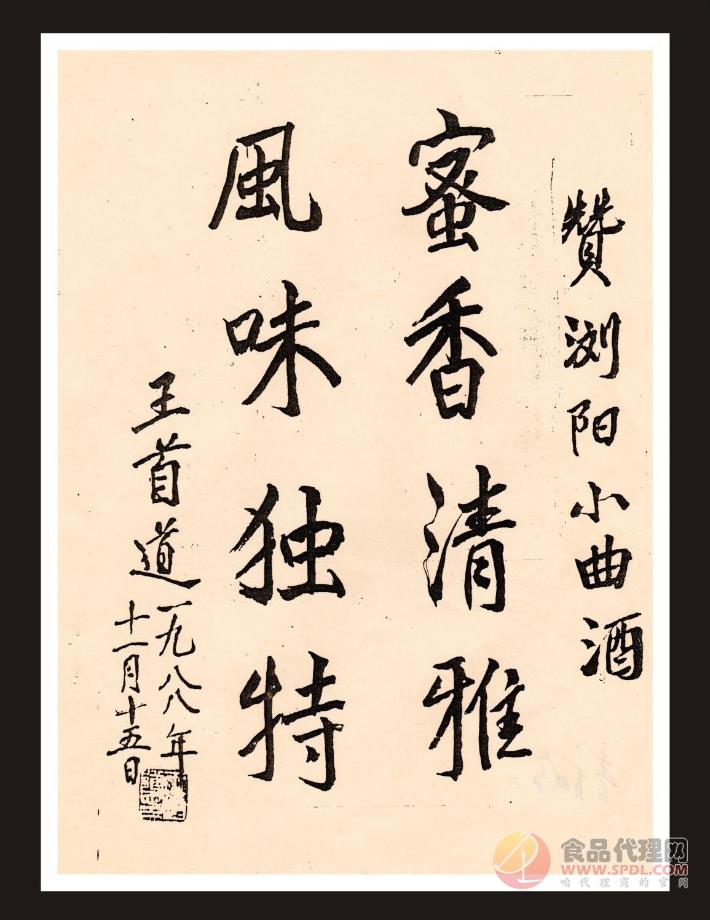 贊浏阳小曲酒
蜜香清雅
風味独特
王首道
一九八八年
十一月十五日
食品代理网
WWW.SPDL.COM
咱代理商的官网